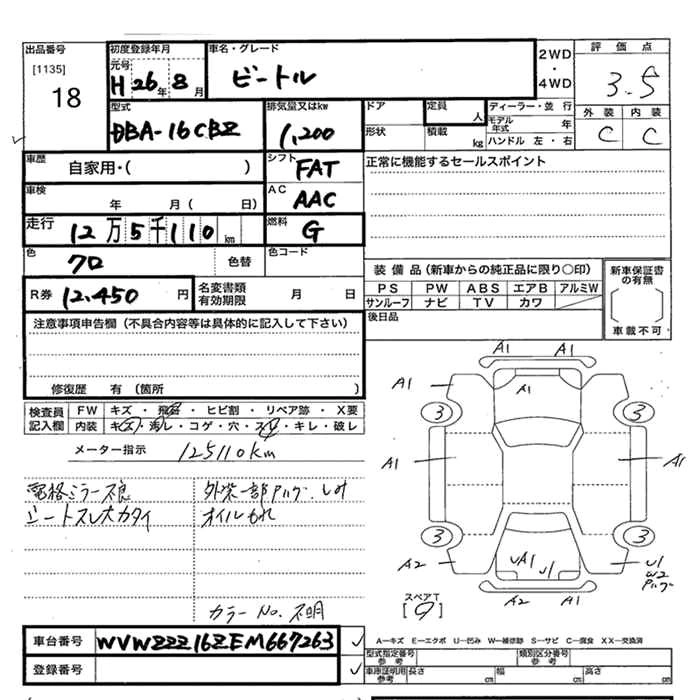 出品番号
[1135]
18
初度登録年月
元号
H 26年 8月
車名・グレード
ビートル
2WD
・
4WD
評価点
3.5
外装 内装
C C
型式
DBA-16CBZ
排気量又はkw
1,200
ドア
定員
人
形状
積載
kg
ディーラー・並行
モデル年式 年
ハンドル 左・右
車歴
自家用・( )
シフト
FAT
正常に機能するセールスポイント
車検
年 月( 日)
AC
AAC
走行
12万5千110km
燃料
G
色
クロ
色替
色コード
R券 12,450円
名変書類
有効期限
月 日
装備品(新車からの純正品に限り○印)
PS PW ABS エアB アルミW
サンルーフ ナビ TV カワ
新車保証書
の有無
車載不可
後日品
注意事項申告欄(不具合内容等は具体的に記入して下さい)
修復歴 有(箇所 )
検査員
記入欄
FW キズ・飛石・ヒビ割・リペア跡・X要
内装 キズ・汚レ・コゲ・穴・スレ・キレ・破レ
メーター指示 125110km
電格ミラー不良
シートスレ大カタイ
外装一部ハガレ.しみ
オイルもれ
カラーNo.不明
A1 A1
A1
A1
3 3
A1 A1
3 3
A2
UA1 U1
U1
W2
ハガレ
A2 A1
スペアT
[9]
車台番号 WVWZZZ16ZEM667263
登録番号
A―キズ E―エクボ U―凹み W―補修跡 S―サビ C―腐食 XX―交換済
型式指定番号
参考
類別区分番号
参考
車庫証明用
参考
長さ cm 幅 cm 高さ cm